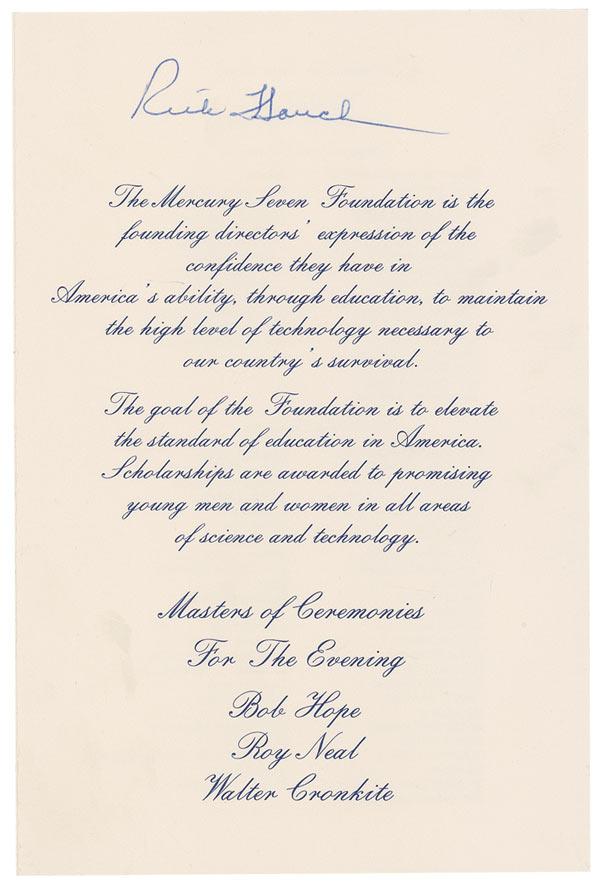 Rick Hauck
The Mercury Seven Foundation is the
founding directors' expression of the
confidence they have in
America's ability, through education, to maintain
the high level of technology necessary to
our country's survival.
The goal of the Foundation is to elevate
the standard of education in America.
Scholarships are awarded to promising
young men and women in all areas
of science and technology.
Masters of Ceremonies
For The Evening
Bob Hope
Roy Neal
Walter Cronkite